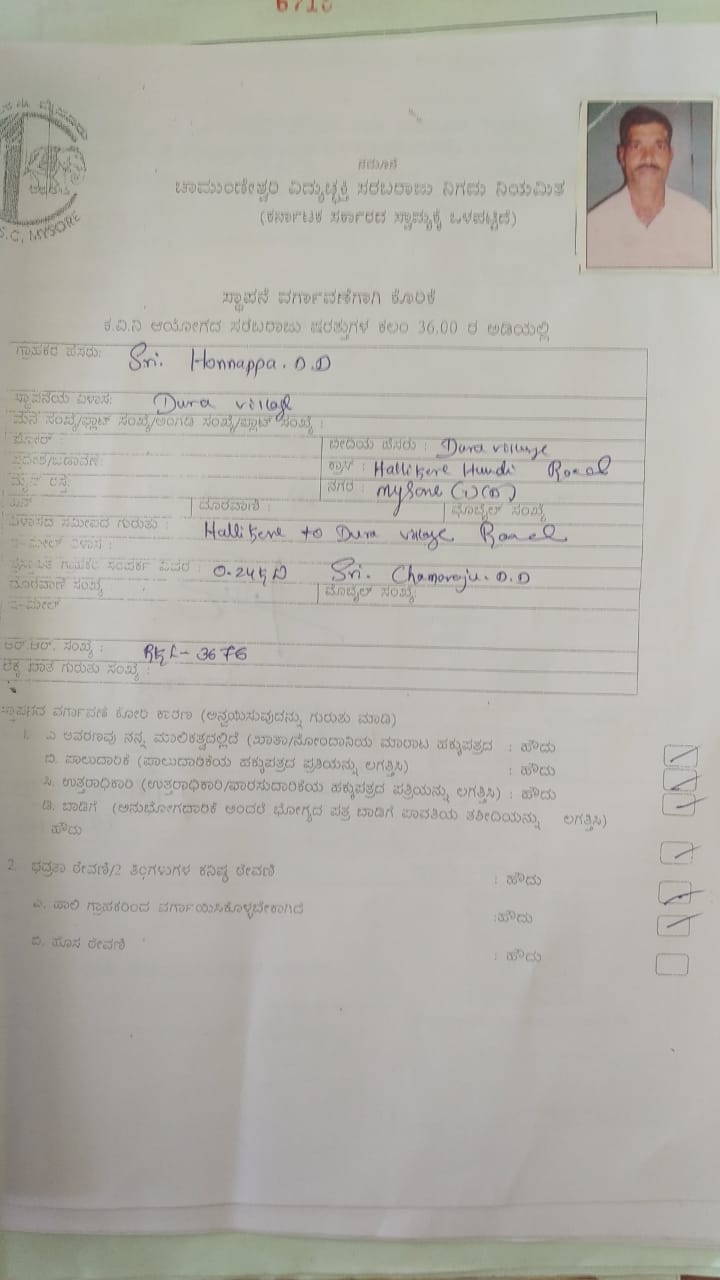 6710
S.C, MYSORE
ನಮೂನೆ
ಚಾಮುಂಡೇಶ್ವರಿ ವಿದ್ಯುಚ್ಛಕ್ತಿ ಸರಬರಾಜು ನಿಗಮ ನಿಯಮಿತ
(ಕರ್ನಾಟಕ ಸರ್ಕಾರದ ಸ್ವಾಮ್ಯಕ್ಕೆ ಒಳಪಟ್ಟಿದೆ)
ಸ್ಥಾಪನೆ ವರ್ಗಾವಣೆಗಾಗಿ ಕೋರಿಕೆ
ಕ.ವಿ.ನಿ ಆಯೋಗದ ಸರಬರಾಜು ಷರತ್ತುಗಳ ಕಲಂ 36.00 ರ ಅಡಿಯಲ್ಲಿ
ಗ್ರಾಹಕರ ಹೆಸರು: Sri. Honnappa. D.D
ಸ್ಥಾಪನೆಯ ವಿಳಾಸ: Dura village
ಮನೆ ಸಂಖ್ಯೆ/ಫ್ಲಾಟ್ ಸಂಖ್ಯೆ/ಅಂಗಡಿ ಸಂಖ್ಯೆ/ಪ್ಲಾಟ್ ಸಂಖ್ಯೆ :
ಬೀದಿಯ ಹೆಸರು : Dura village
ಪ್ರದೇಶ/ಬಡಾವಣೆ: ಕ್ರಾಸ್ : Hallikere Hundi Road
ಮೈನ್ ರಸ್ತೆ: ನಗರ : Mysore
ಪಿನ್ ದೂರವಾಣಿ : ಮೊಬೈಲ್ ಸಂಖ್ಯೆ
ವಿಳಾಸದ ಸಮೀಪದ ಗುರುತು : Hallikere to Dura village Road
ಇ-ಮೇಲ್ ವಿಳಾಸ :
ಗ್ರಾಹಕರ ಸಂಪರ್ಕ ವಿವರ : Sri. Chamaraju. D.D
ದೂರವಾಣಿ ಸಂಖ್ಯೆ ಮೊಬೈಲ್ ಸಂಖ್ಯೆ:
ಇ-ಮೇಲ್
ಆರ್.ಆರ್. ಸಂಖ್ಯೆ : 3676
ಲೆಕ್ಕ ಖಾತೆ ಗುರುತು ಸಂಖ್ಯೆ :
ಸ್ಥಾಪನದ ವರ್ಗಾವಣೆ ಕೋರಿ ಕಾರಣ (ಅನ್ವಯಿಸುವುದನ್ನು ಗುರುತು ಮಾಡಿ)
1. ಎ ಆವರಣವು ನನ್ನ ಮಾಲಿಕತ್ವದಲ್ಲಿದೆ (ಖಾತಾ/ನೋಂದಾನಿಯ ಮಾರಾಟ ಹಕ್ಕುಪತ್ರದ : ಹೌದು
ಬಿ. ಪಾಲುದಾರಿಕೆ (ಪಾಲುದಾರಿಕೆಯ ಹಕ್ಕುಪತ್ರದ ಪ್ರತಿಯನ್ನು ಲಗತ್ತಿಸಿ) : ಹೌದು
ಸಿ. ಉತ್ತರಾಧಿಕಾರಿ (ಉತ್ತರಾಧಿಕಾರಿ/ವಾರಸುದಾರಿಕೆಯ ಹಕ್ಕುಪತ್ರದ ಪತ್ರಿಯನ್ನು ಲಗತ್ತಿಸಿ) : ಹೌದು
ಡಿ. ಬಾಡಿಗೆ (ಅನುಭೋಗದಾರಿಕೆ ಅಂದರೆ ಭೋಗ್ಯದ ಪತ್ರ ಬಾಡಿಗೆ ಪಾವತಿಯ ರಶೀದಿಯನ್ನು ಲಗತ್ತಿಸಿ)
ಹೌದು
2. ಭದ್ರತಾ ಠೇವಣಿ/2 ತಿಂಗಳುಗಳ ಕನಿಷ್ಠ ಠೇವಣಿ : ಹೌದು
ಎ. ಹಾಲಿ ಗ್ರಾಹಕರಿಂದ ವರ್ಗಾಯಿಸಿಕೊಳ್ಳಬೇಕಾಗಿದೆ :ಹೌದು
ಬಿ. ಹೊಸ ಠೇವಣಿ : ಹೌದು